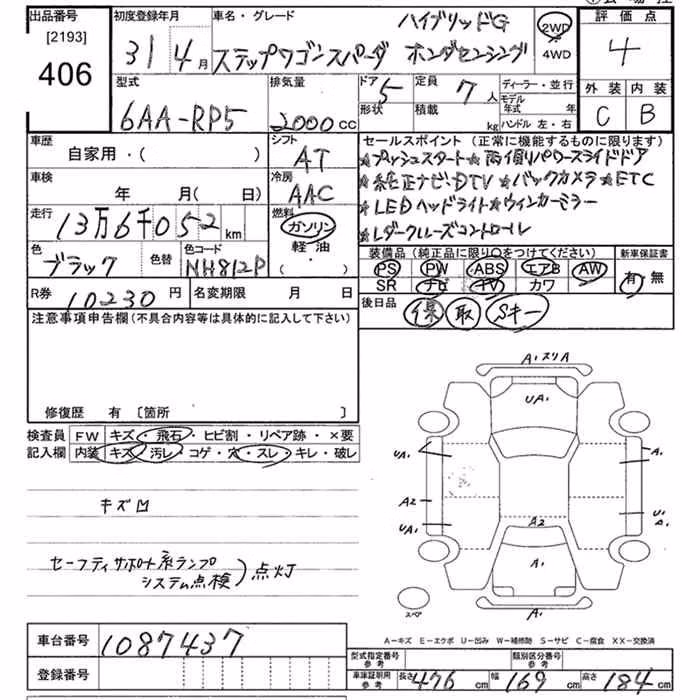 出品番号 [2193] 406
初度登録年月 31 4月
車名・グレード ハイブリッドG
ステップワゴンスパーダ ホンダセンシング
2WD 4WD
評価点 4
外装 内装
C B
型式 6AA-RP5
排気量 2000cc
ドア 5 定員 7人
形状 積載 kg
ディーラー・並行
モデル年式 年
ハンドル 左・右
車歴 自家用・( )
シフト AT
車検 年 月( 日)
冷房 AAC
走行 13万6千052km
燃料 ガソリン 軽油 ( ・ )
色 ブラック 色替
色コード NH812P
R券 10230円
名変期限 月 日
セールスポイント (正常に機能するものに限ります)
★プッシュスタート★両側パワースライドドア
★純正ナビ・DTV★バックカメラ★ETC
★LEDヘッドライト★ウィンカーミラー
★レダークルーズコントロール
装備品 (純正品に限り○をつけてください)
新車保証書
PS PW ABS エアB AW
SR ナビ TV カワ
有・無
後日品 保 取 Sキー
注意事項申告欄 (不具合内容等は具体的に記入して下さい)
修復歴 有 [箇所 ]
検査員記入欄
FW キズ・飛石・ヒビ割・リペア跡・×要
内装 キズ・汚レ・コゲ・穴・スレ・キレ・破レ
キズ凹
セーフティサポート系ランプ
システム点検) 点灯
A1スリA
UA1
UA1 A1
A2
UA1 U1 A1
A2
A1
スペア
A1
A-キズ E-エクボ U-凹み W-補修跡 S-サビ C-腐食 XX-交換済
車台番号 1087437
登録番号
型式指定番号 参考
類別区分番号 参考
車庫証明用 参考 長さ 476cm 幅 169cm 高さ 184cm